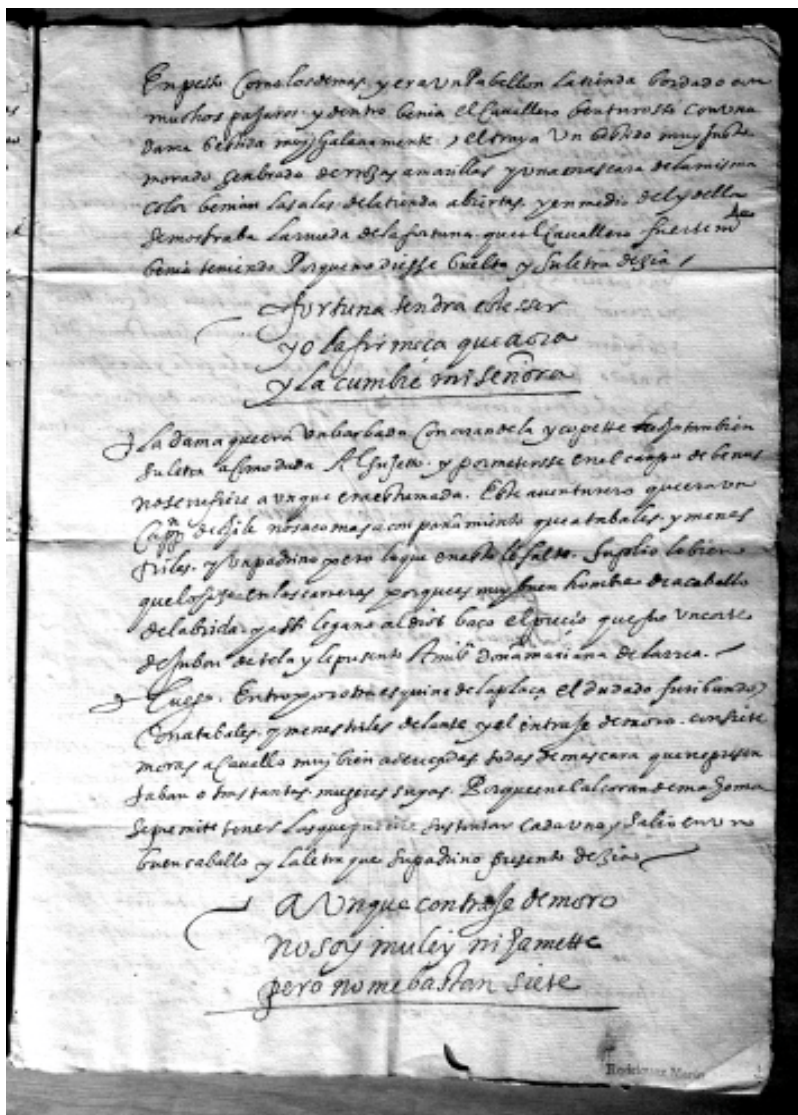 En pesso Como los demas. y era Un Pabellon La tienda bordado con
muchos paxaros. y dentro benia el Cavallero benturosso con una
dama bestida muy galanamente. y el traya Un bestido muy justo
morado senbrado de rrosas amarillas y una mascara de la misma
color benian las alas de la tienda abiertas, y en medio del y della
se mostraba la rrueda de la fortuna. que el Cavallero fuertemte
benia teniendo Porque no diesse buelta y su letra dezia /
fortuna tendra este sser
yo la firmeça que adora
y la cumbre mi señora
La dama que era Un barbado Con arandela y copette tambien
su letra acomodada Al sujetto. y por meterse en el campo de benus
no se rrefiere aunque era estremada. Este aventurero que era un
Cappn de no saco mas aconpañamiento que atabales. y menes
triles. y Un padrino pero lo que en esto le falto. Suplio lo bien
que lo hizo en las carreras porque es muy buen hombre de a caballo
de la brida. y assi le gano al dios baço el precio que fue un corte
de Jubon de tela y le presento A mi sª doña mariana de larrea.
Luego. Entro por otra esquina de la plaça el dudado furibundo
Con atabales. y menestriles delante y el en traje de moro. con siete
moras a Cavallo muy bien adereçadas todas de mascara que rrepresen
taban otras tantas mugeres suyas. Porque en el alcoran de mahoma
se permite tener las que pudiere sustentar cada uno y salio en un
buen caballo y la letra que su padrino presento dezia
aUnque con traje de moro
no soy muley ni hamette
pero no me bastan siete
Rodriguez Marin